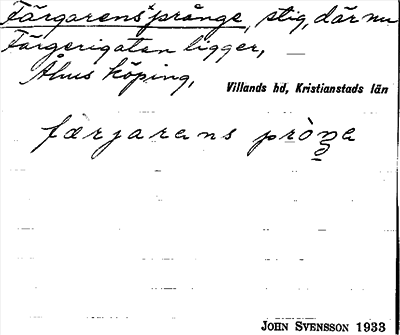 Färgarens prånge, stig, där nu
Färgerigatan ligger,
Åhus köping,
Villands hd, Kristianstads län
færjarens pròŋə
JOHN SVENSSON 1933